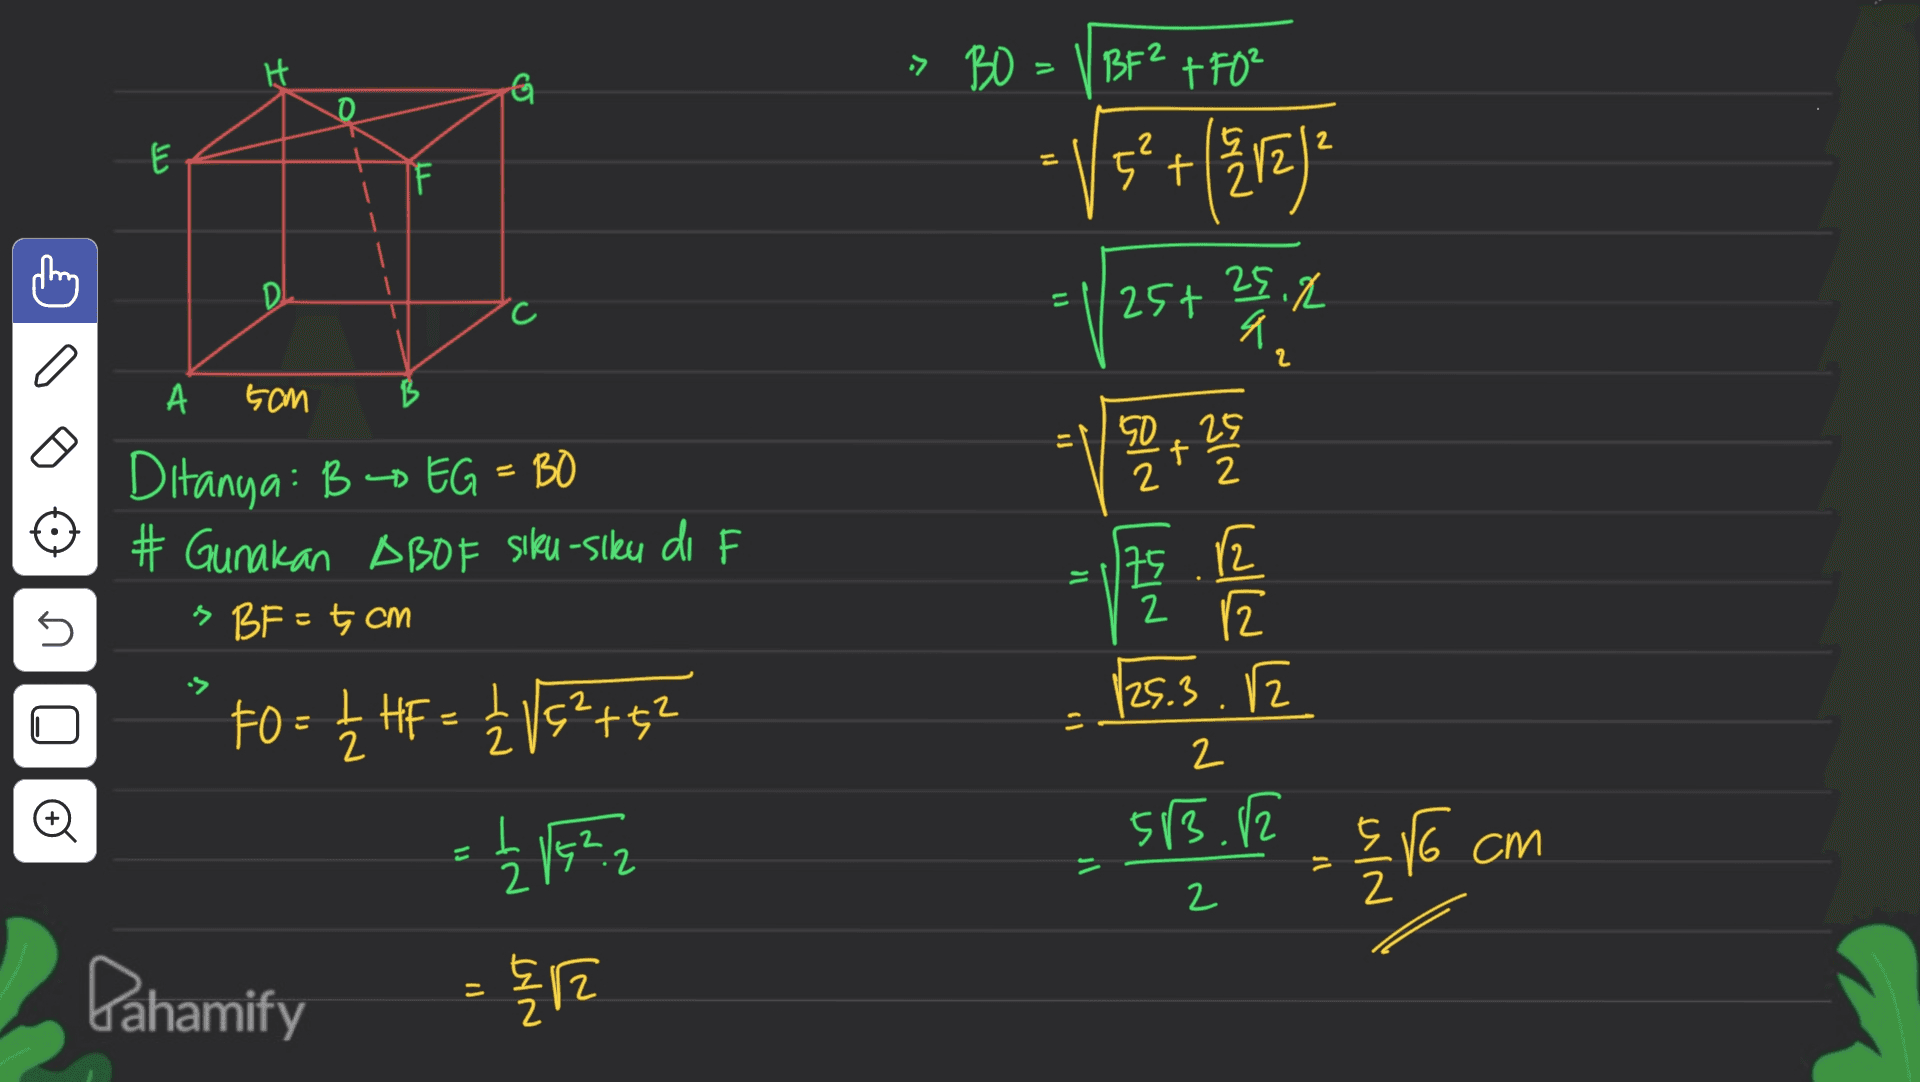 H
G
O
E
F
D
C
A 5cm B
Ditanya: B → EG = BO
# Gunakan ΔBOF siku-siku di F
BF = 5 cm
FO = 1/2 HF = 1/2 √(5² + 5²)
= 1/2 √(5².2)
= 5/2 √2
BO = √(BF² + FO²)
= √(5² + (5/2 √2)²)
= √(25 + 25/4 . 2) 2
= √(50/2 + 25/2)
= √(75/2) . √2/√2
= √(25.3) . √2 / 2
= 5√3 . √2 / 2 = 5/2 √6 cm
Pahamify